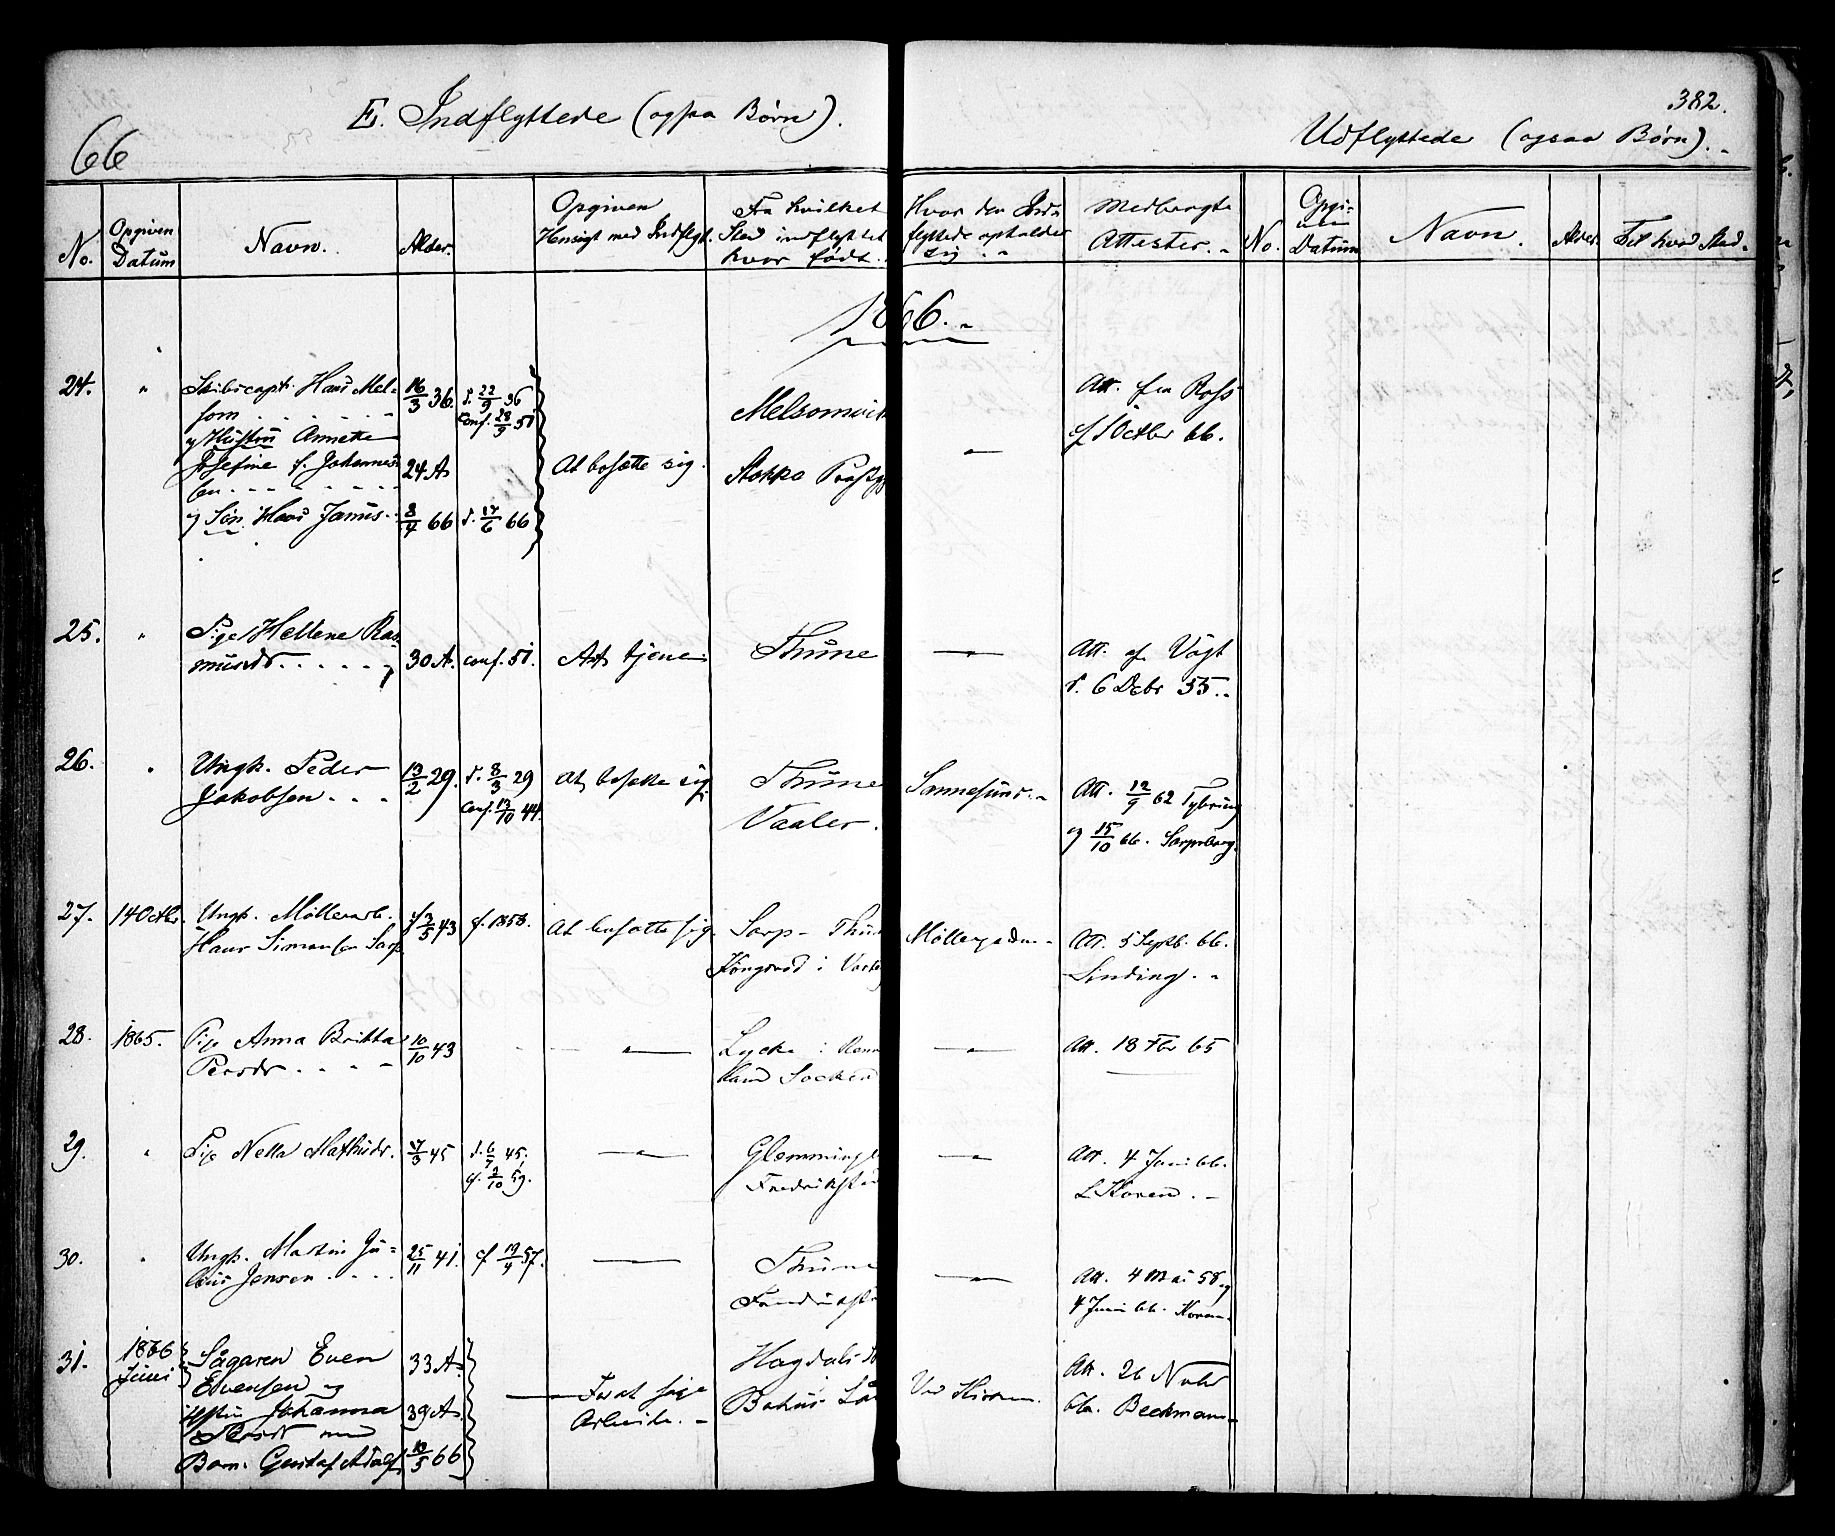 382.
E. Indflyttede (ogsaa Børn).
Udflyttede (ogsaa Børn).
66
No.
Opgiven Datum
Navn.
Alder.
Opgiven Hensigt med Indflyt.
Fra hvilket Sted indflyttet hvor født.
Hvor den Indflyttede opholder sig.
Medbragte Attester.
No.
Opgiven Datum
Navn.
Alder.
Til hvad Sted.
1866.
24. " Skibscapt. Hans Mel- 16/3 36. d. 22/9 36 Melsomvik Att. fra
som conf. 28/9 51 af 1 Octbr 66.
og Hustru Annette
Josefine f. Johannes- 24 A At bosætte sig. Stokke Præstgj
sen
og Søn Hans 8/4 66 d. 17/6 66
25. " Pige Hellene Ras-
musdr. 30 A. conf. 51. At tjene Thune Att. af Vogt
d. 6 Decbr 55.
26. " Ungk. Peder 13/2 29. d. 8/3 29 At bosætte sig Thune Sannesund. Att. 12/9 62 Tybring
Jakobsen conf. 13/10 44. Vaaler. og 15/10 66. Sarpsborg.
27. 14 Octbr. Ungk. Møllerarb. f 3/5 43 cf. 1858. At bosætte sig Sarp- Thune Møllergaden Att. 5 Septb. 66.
Hans Simonsen Sarp i Linding.
28. 1865. Pige Anna Britta 10/10 43 Lycke i Att. 18 Fbr 65
Persdr. Socken
29. " Pige Nella Mathisdr. 7/3 45 d. 6/7 45. Glemminge Att. 4 Juni 66.
cf. 2/10 59. Fredriksta Koren.
30. " Ungk. Martin Ju- 25/11 41. cf 19/4 57. Thune Att. 4 Mai 58 og
lius Jensen Fredrikst 4 Juni 66. Koren.
31. 1866 Sågaren Even 33 A. Hagdals Att. 26 Novbr
Juni Evensen og For at søge Bahus Län Ved Kirken. 66. Beckman
Hustru Johanna 39 A. Arbeide.
Persdr med
Barn. Gustaf Adolf 10/5 66